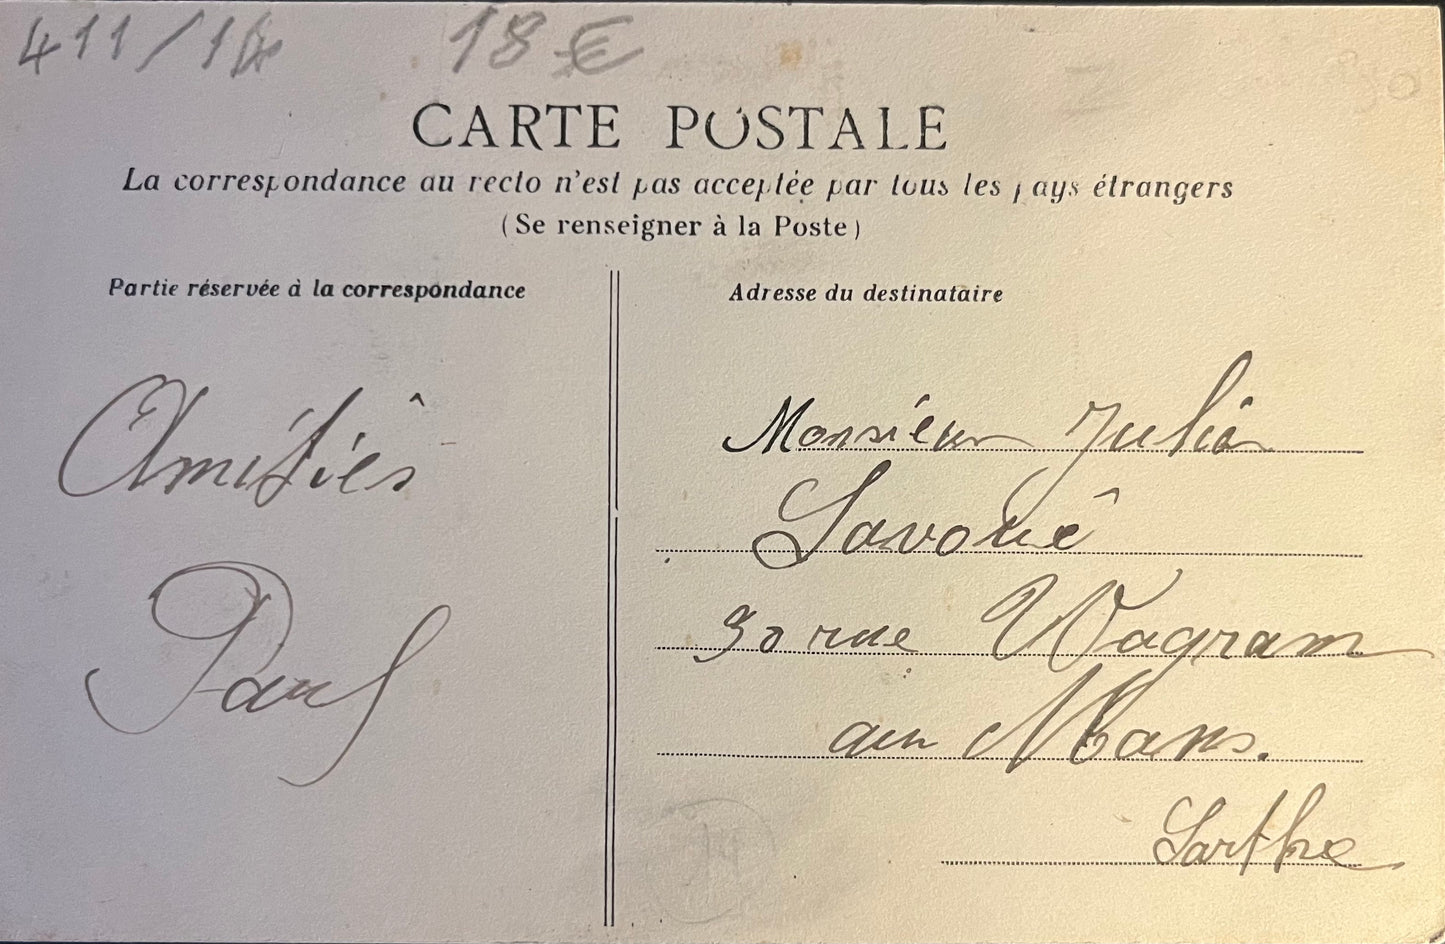 18 €
CARTE POSTALE
La correspondance au recto n'est pas acceptée par tous les pays étrangers
(Se renseigner à la Poste)
Partie réservée à la correspondance
Adresse du destinataire
Amitiés
Paul
Monsieur Julien
Savoué
30 rue Wagram
au Mans.
Sarthe